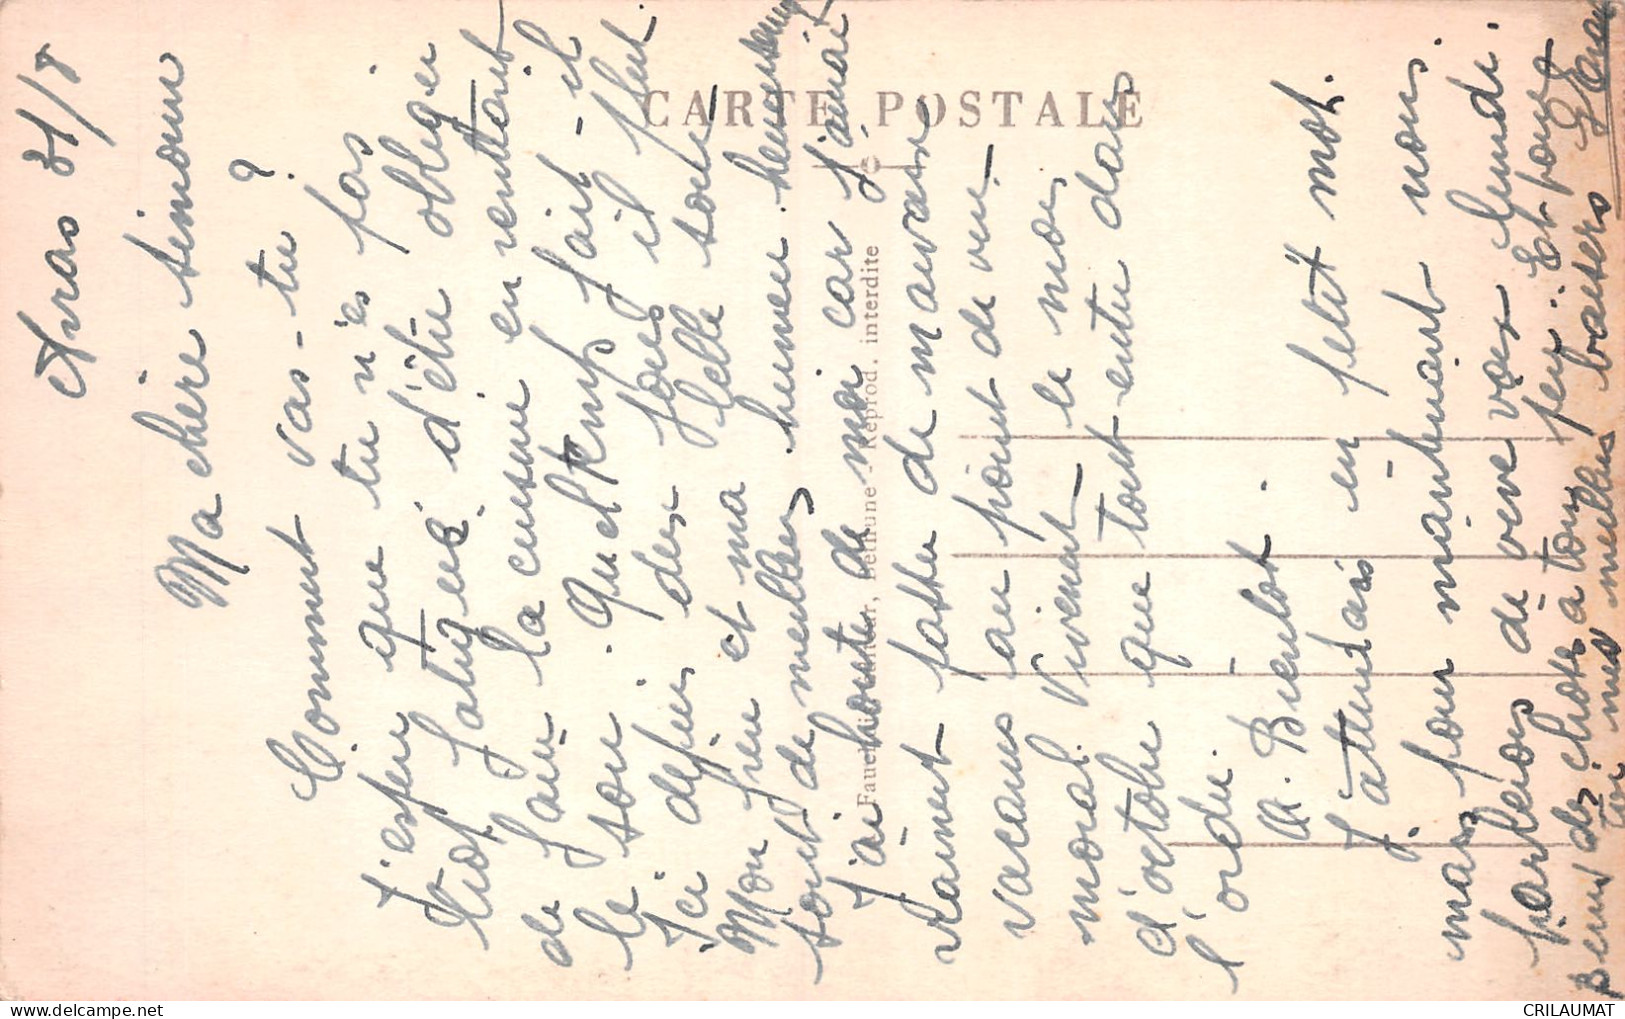 Arras 31/8
Ma chère Simone
Comment vas-tu ?
J'espère que tu n'es pas
trop fatiguée d'être obligée
de faire la cuisine en rentrant
le soir. Quel temps fait-il
Ici depuis des jours il pleut.
Mon frère et ma belle sœur
sont de meilleurs humeur. heureusement
J'ai houte de moi car j'aurai
vraiment passée de mauvaise
vacances au point de vue
moral. Vivement le mois
d'octobre que tout entre dans
l'ordre.
A. Bientot.
J'attendais un petit mot.
mais pour maintenant nous
parlerons de vive voix lundi.
Bien des choses a tous peu. Et pour
toi mes meilleurs baisers
CARTE POSTALE
Béthune - Reprod. interdite
CRILAUMAT